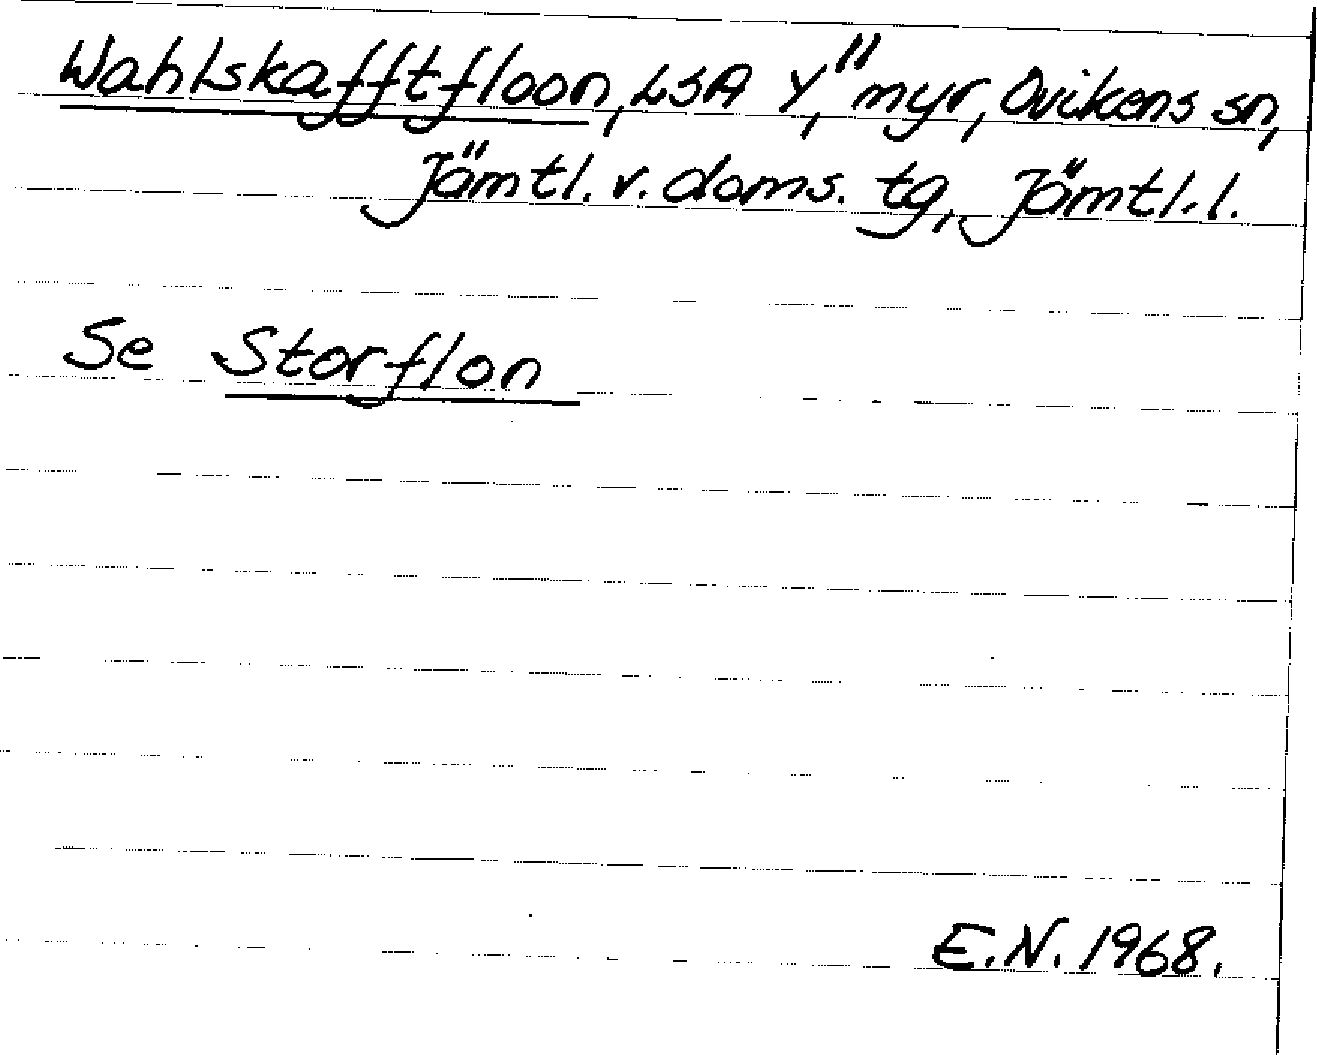 Wahlskafftfloon, LSA Y," myr, Ovikens sn,
Jämtl. v. doms. tg, Jämtl. l.
Se Storflon
E.N. 1968.